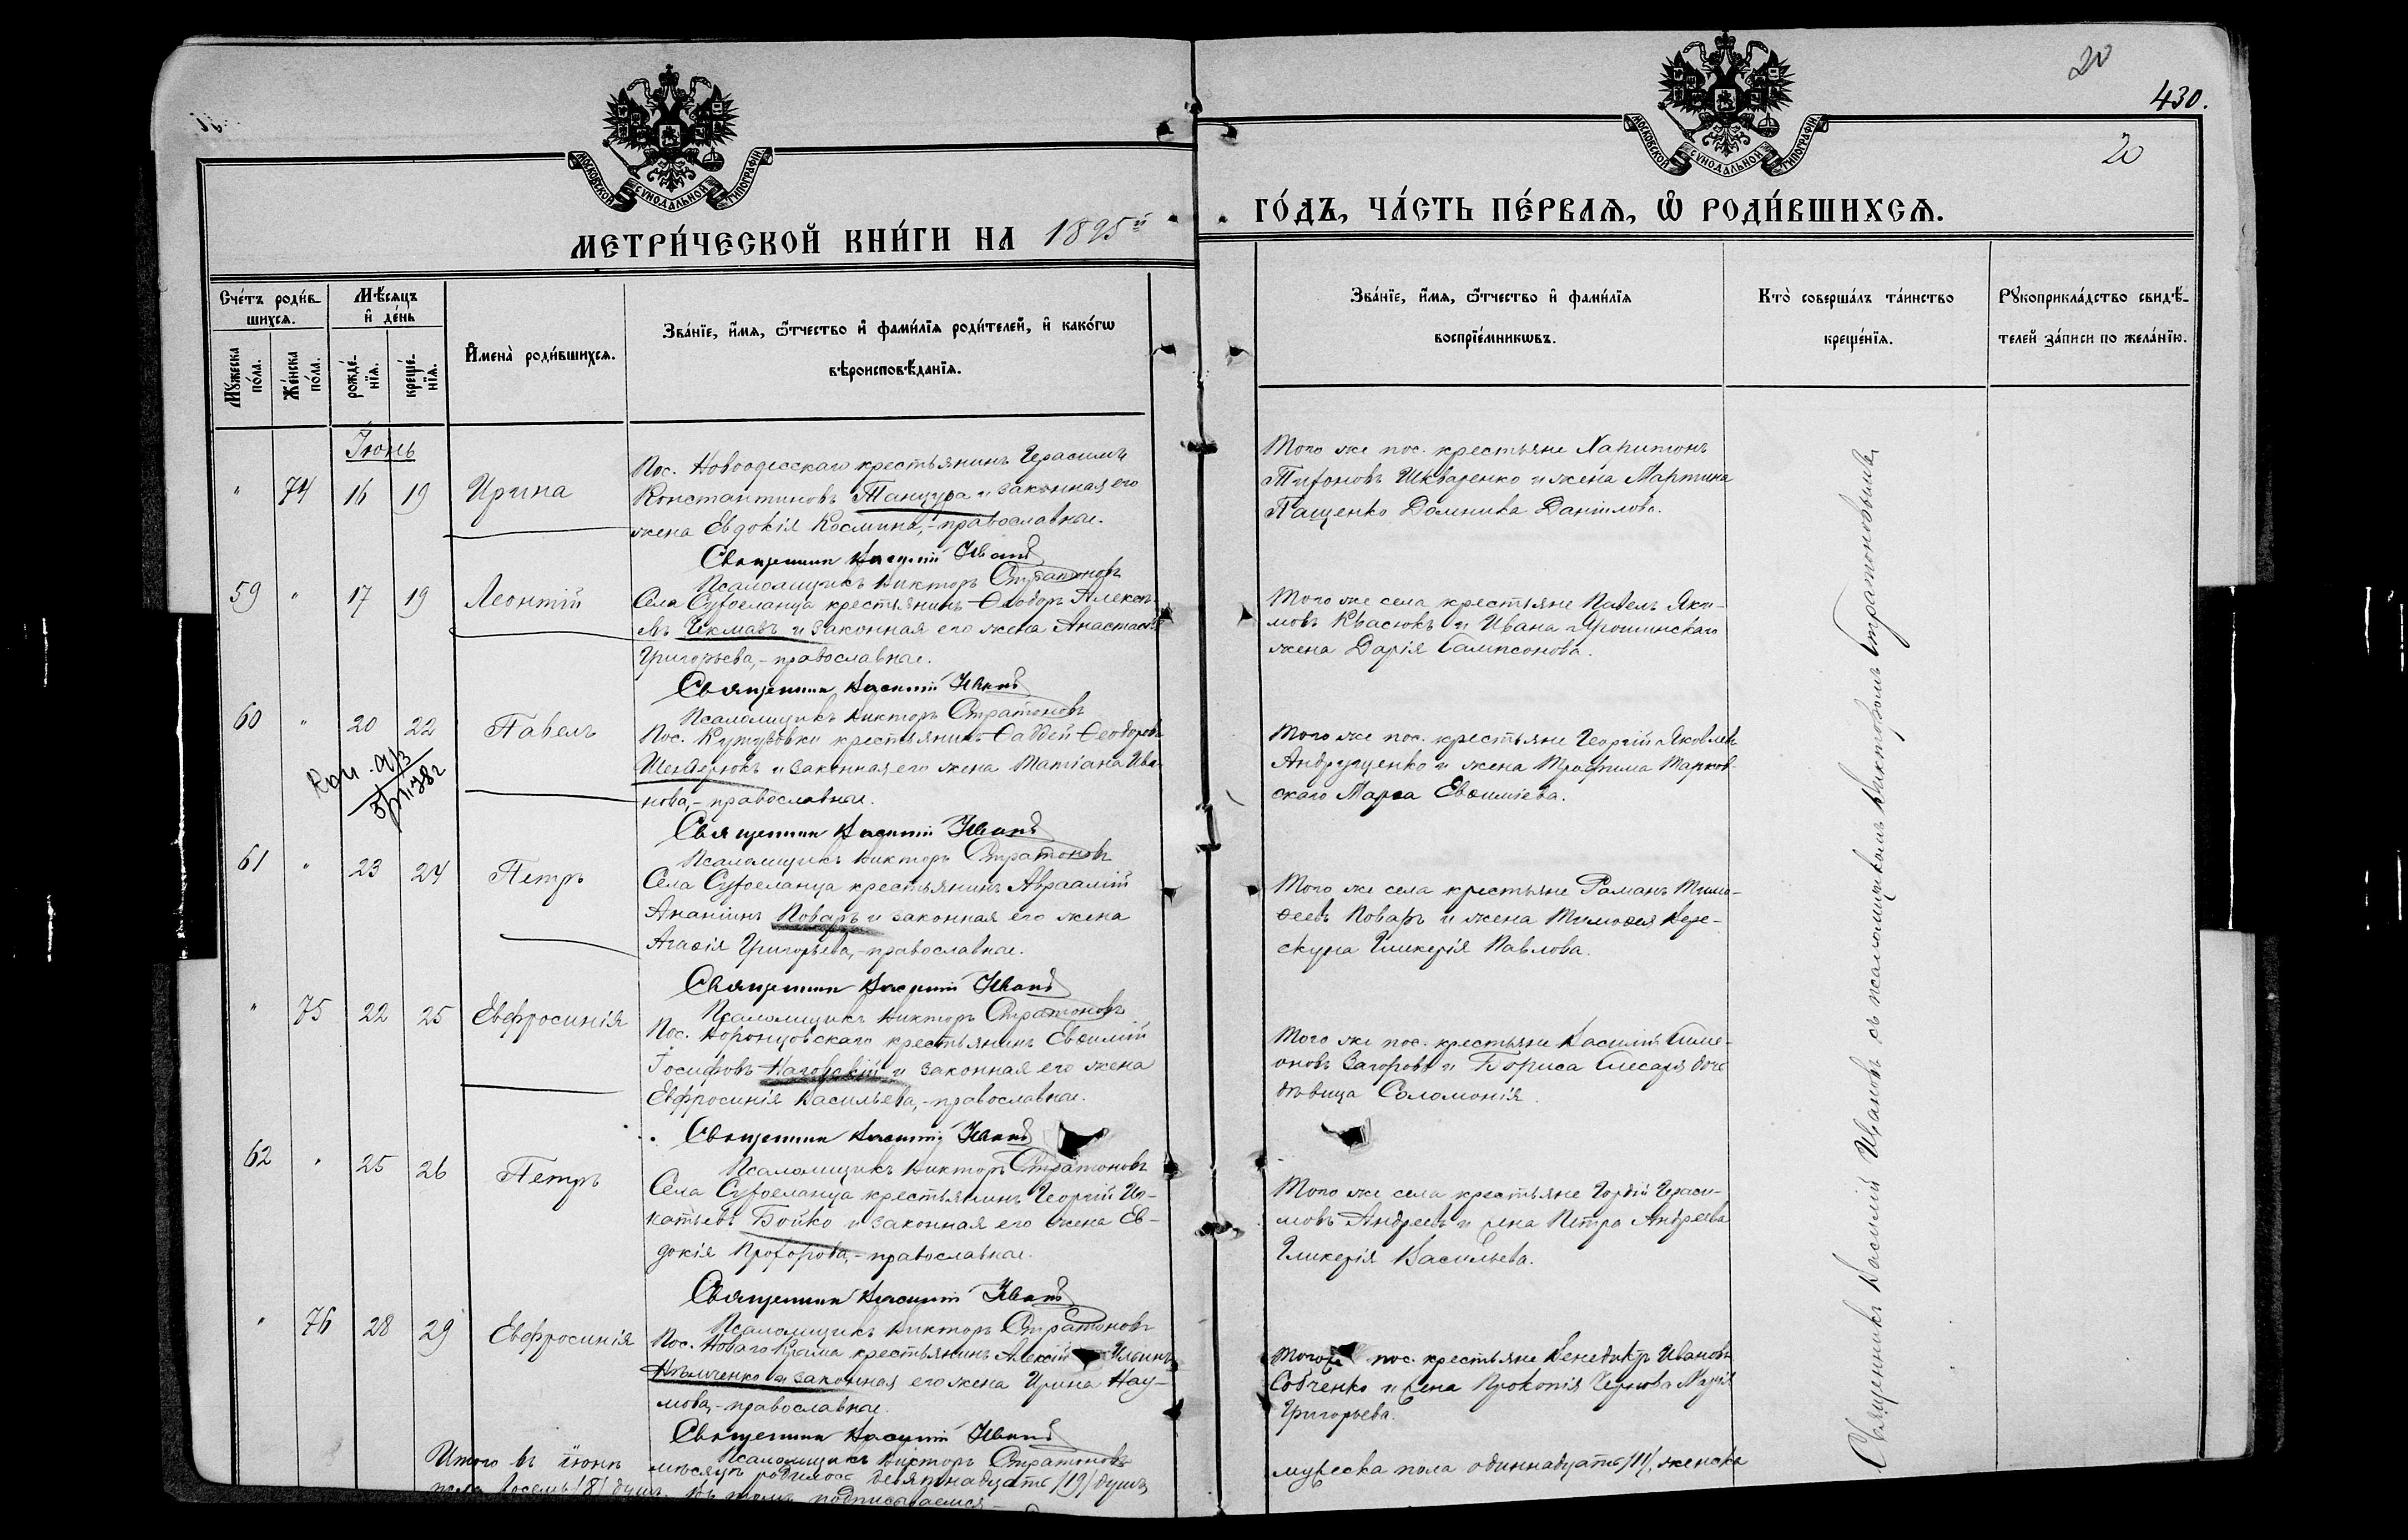 20
430.
20
МОСКОВСКОЙ СѴНОДАЛЬНОЙ ТИПОГРАФІИ
МОСКОВСКОЙ СѴНОДАЛЬНОЙ ТИПОГРАФІИ
МЕТРИ́ЧЕСКОЙ КНИ́ГИ НА 1895й
ГО́ДЪ, ЧА́СТЬ ПЕ́РВАѦ, Ѡ҆ РОДИ́ВШИХСѦ.
Сче́тъ роди́в-
шихсѧ.
Мꙋ́жеска
по́ла.
Же́нска
по́ла.
Мѣ́сѧцъ
и҆ де́нь
рожде́-
нїѧ.
креще́-
нїѧ.
И҆мена̀ роди́вшихсѧ.
Зва́нїе, и҆́мѧ, ѻ҆́тчество и҆ фами́лїѧ роди́телей, и҆ како́гѡ
вѣроисповѣ́данїѧ.
Зва́нїе, и҆́мѧ, ѻ҆́тчество и҆ фами́лїѧ
воспрїе́мникѡвъ.
Кто̀ соверша́лъ та́инство
креще́нїѧ.
Рꙋкоприкла́дство свидѣ́-
телей за́писи по жела́нїю.
Іюнь
" 74 16 19 Ирина
Пос. Новоодесскаго крестьянинъ Герасимъ
Константиновъ Танцура и законная его
жена Евдокія Космина,- православные.
Священник Василій Иванов
Псаломщикъ Викторъ Стратоновъ
Того же пос. крестьяне Харитонъ
Шкваренко и жена Мартина
Пащенко Домника Данилова.
59 " 17 19 Леонтій
Села крестьянинъ Ѳеодоръ Алексѣ-
въ Чекмавъ и законная его жена Анастасія
Григорьева,- православные.
Священник Василій Иванов
Псаломщикъ Викторъ Стратоновъ
Того же села крестьяне Павелъ Яки-
мовъ Квасюкъ и Ивана Ярошинскаго
жена Дарія Сампсонова.
60 " 20 22 Павелъ
Пос. Кутузовки крестьянинъ Ѳаддей Ѳеодоровъ
и законная его жена Татіана Ива-
нова,- православные.
Священник Василій Иванов
Псаломщикъ Викторъ Стратоновъ
Того же пос. крестьяне Георгій Яковлевъ
Андрущенко и жена Трофима Марков-
скаго Марѳа Евѳиміева.
61 " 23 24 Петръ
Села крестьянинъ Авраамій
Ананіинъ Поваръ и законная его жена
Агаѳія Григорьева,- православные.
Священник Василій Иванов
Псаломщикъ Викторъ Стратоновъ
Того же села крестьяне Романъ Тимо-
ѳеевъ Поваръ и жена Тимоѳея Вере-
скуна Гликерія Павлова.
" 75 22 25 Евфросинія
Пос. Воронцовскаго крестьянинъ Евѳимій
Іосифовъ Нагорскій и законная его жена
Евфросинія Васильева,- православные.
Священник Василій Иванов
Псаломщикъ Викторъ Стратоновъ
Того же пос. крестьяне Василій Симе-
оновъ Загоровъ и Бориса Слесаря дочь
дѣвица Соломонія.
62 " 25 26 Петръ
Села крестьянинъ Георгій Иг-
натьевъ Бойко и законная его жена Ев-
докія Прохорова,- православные.
Священник Василій Иванов
Псаломщикъ Викторъ Стратоновъ
Того же села крестьяне Гордій Гераси-
мовъ Андреевъ и жена Петра Андреева
Гликерія Васильева.
" 76 28 29 Евфросинія
Пос. Новаго Крыма крестьянинъ Алексій Ильинъ
и законная его жена Ирина Нау-
мова,- православные.
Священник Василій Иванов
Псаломщикъ Викторъ Стратоновъ
Того же пос. крестьяне Венедиктъ Ивановъ
Собченко и жена Прокопія Чернова Марія
Григорьева.
Итого въ іюнѣ мѣсяцѣ родилось девятнадцать /19/ душъ, мужеска пола одиннадцать /11/, женска
пола восемь /8/ душъ. Въ томъ подписываемся
Священникъ Василій Ивановъ съ псаломщикомъ Викторомъ Стратоновымъ